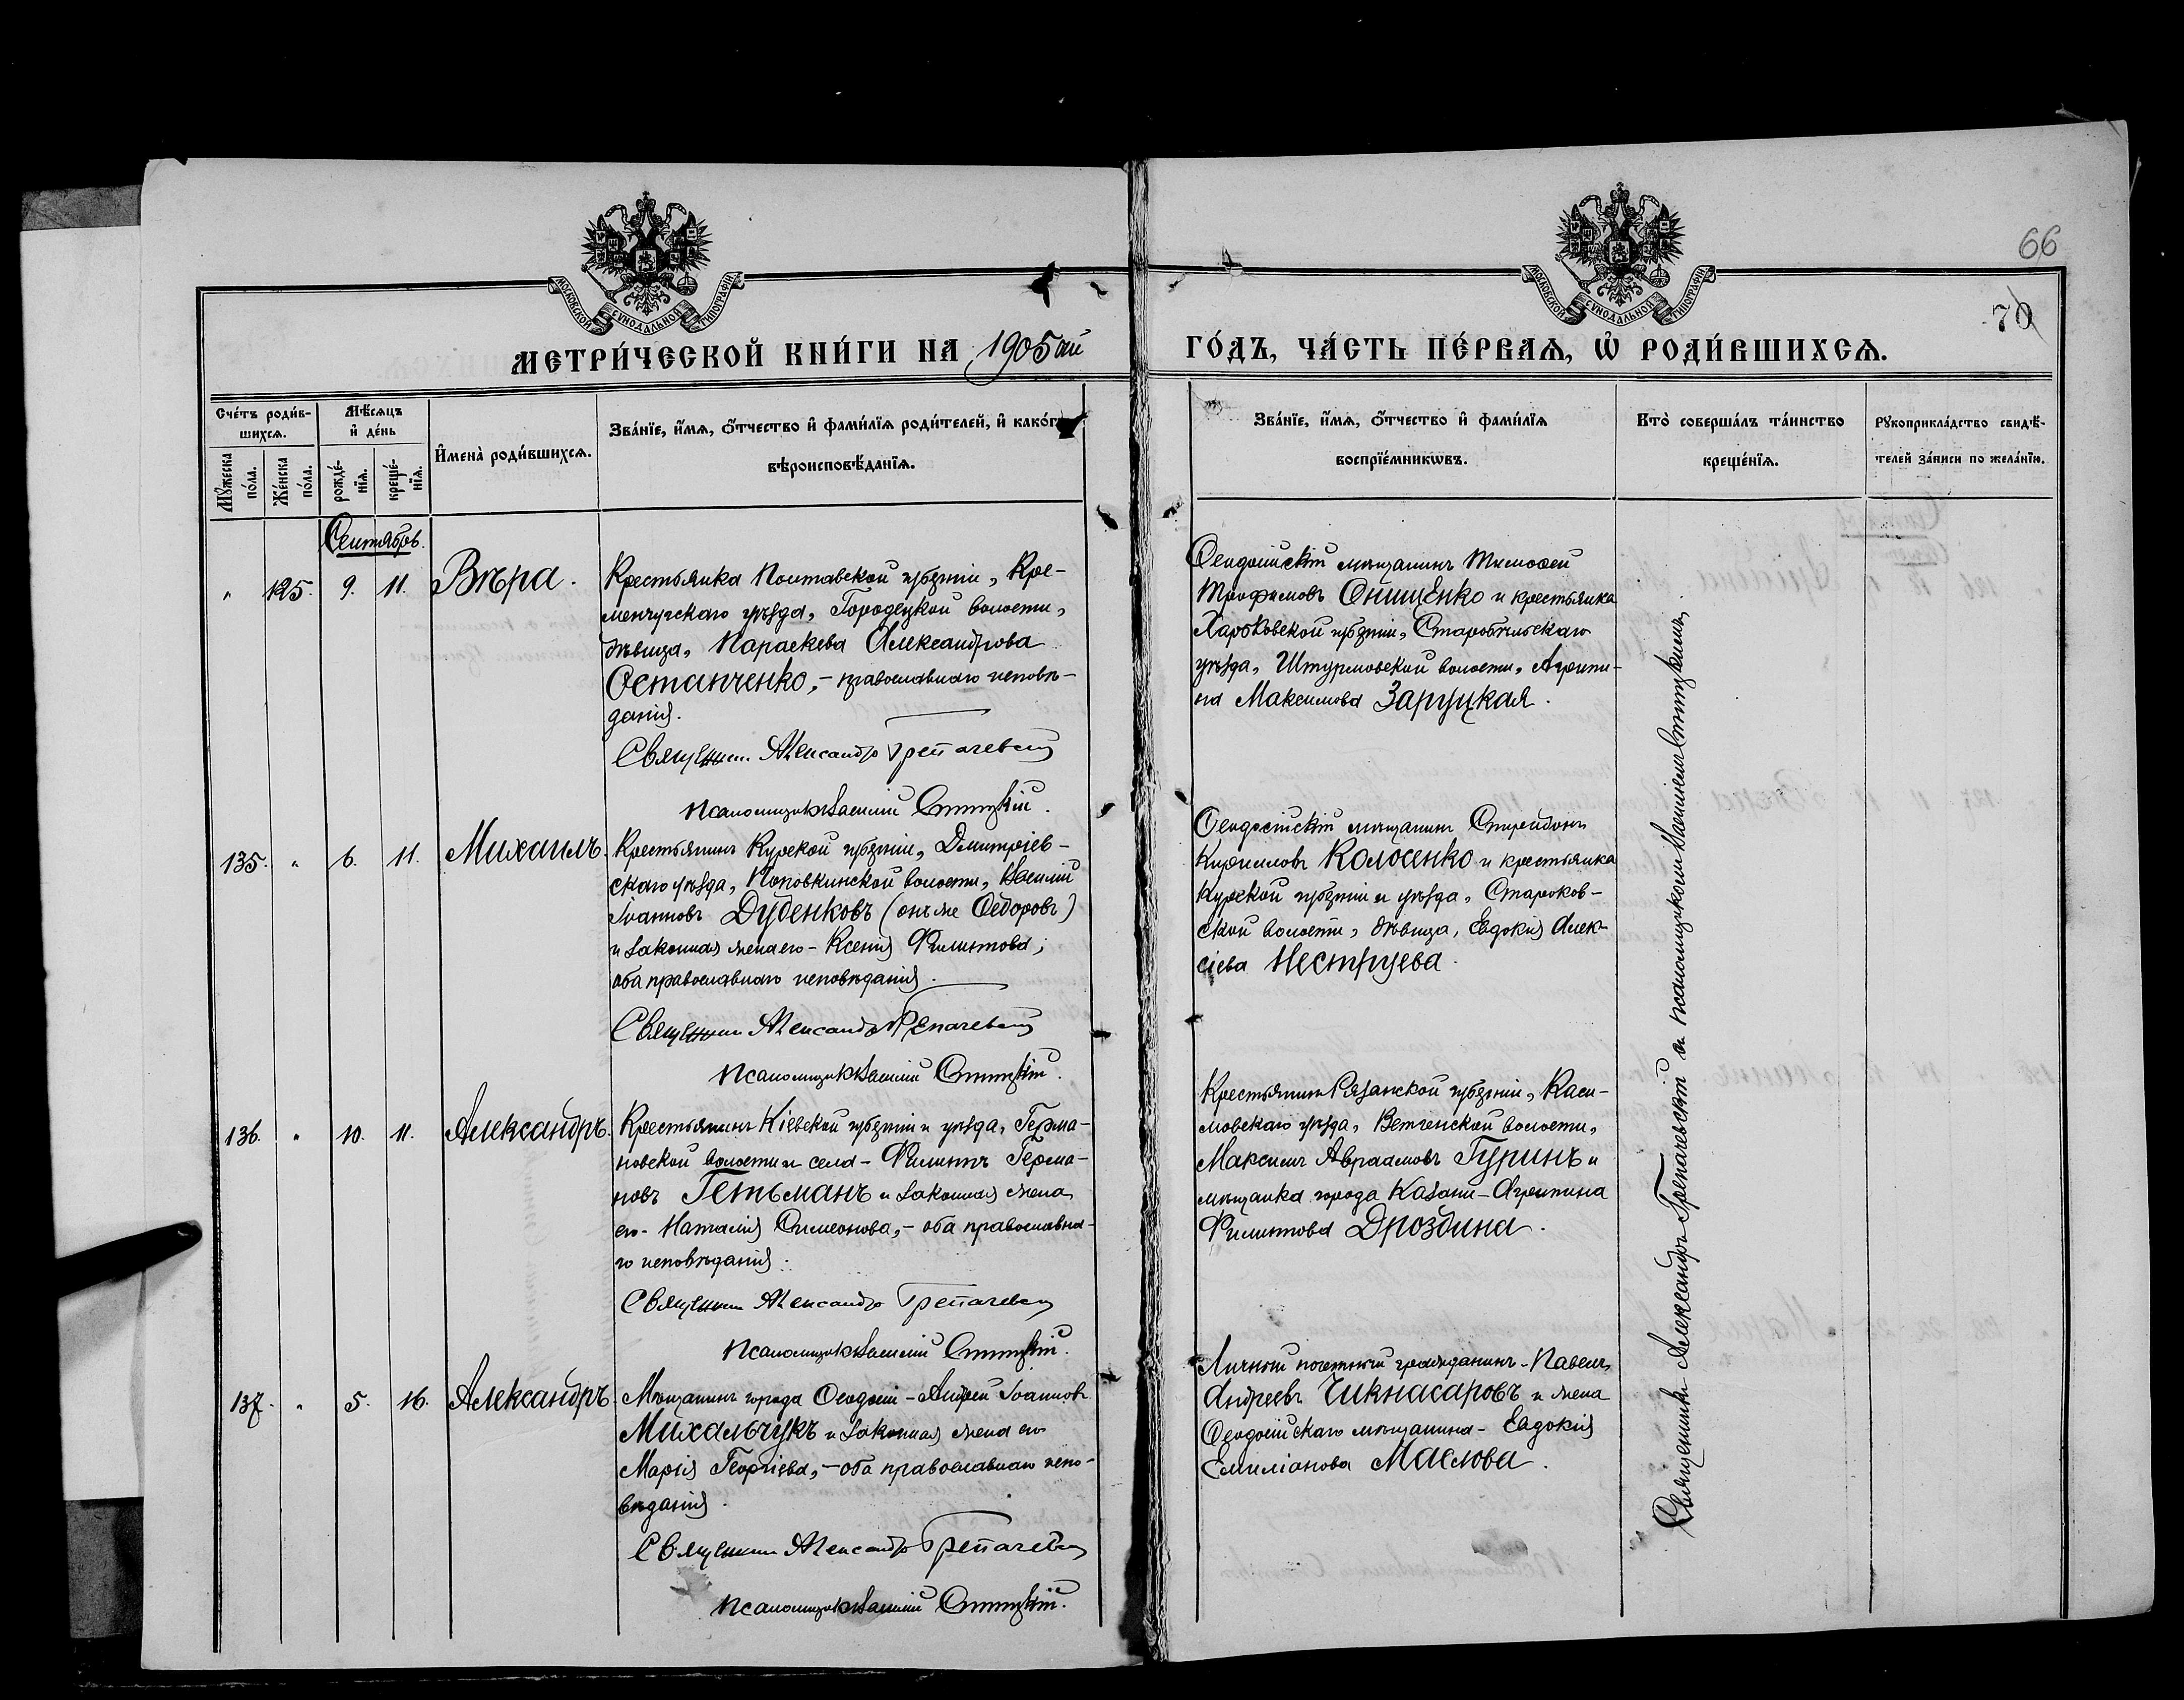 66
70
МОСКОВСКОЙ СѴНОДАЛЬНОЙ ТИПОГРАФІИ
МОСКОВСКОЙ СѴНОДАЛЬНОЙ ТИПОГРАФІИ
МЕТРИ́ЧЕСКОЙ КНИ́ГИ НА 1905ый ГО́ДЪ, ЧА́СТЬ ПЕ́РВАѦ, Ѽ РОДИ́ВШИХСѦ.
Сче́тъ роди́в-
шихсѧ.
Мꙋ́жеска по́ла.
Же́нска по́ла.
Мѣ́сѧцъ
и҆ де́нь
рожде́-
нїѧ.
креще́-
нїѧ.
И҆мена̀ роди́вшихсѧ.
Зва́нїе, и҆́мѧ, ѻ҆́тчество и҆ фами́лїѧ роди́телей, и҆ како́гѡ
вѣроисповѣ́данїѧ.
Зва́нїе, и҆́мѧ, ѻ҆́тчество и҆ фами́лїѧ
воспрїе́мникѡвъ.
Кто̀ соверша́лъ та́инство
креще́нїѧ.
Рꙋкоприкла́дство свидѣ́-
телей за́писи по жела́нїю.
Сентябрь.
" 125. 9. 11. Вѣра.
Крестьянка Полтавской губерніи, Кре-
менчугскаго уѣзда, Городецкой волости,
дѣвица, Параскева Александрова
Останченко, - православнаго исповѣ-
данія.
Священникъ Александръ Грепачевскій
Псаломщикъ Василій Ступницкій.
Ѳеодосійскій мѣщанинъ Тимоѳей
Трофимовъ Онищенко и крестьянка
Харьковской губерніи, Старобѣльскаго
уѣзда, Штурмовской волости, Агрипи-
на Максимова Заруцкая.
135. " 6. 11. Михаилъ.
Крестьянинъ Курской губерніи, Дмитріев-
скаго уѣзда, Поповкинской волости, Василій
Іоанновъ Дуденковъ (онъ же Ѳедоровъ)
и законная жена его - Ксенія Филиппова;
оба православнаго исповѣданія.
Священникъ Александръ Грепачевскій
Псаломщикъ Василій Ступницкій.
Ѳеодосійскій мѣщанинъ Спиридонъ
Кирилловъ Колосенко и крестьянка
Курской губерніи и уѣзда, Стараков-
ской волости, дѣвица, Евдокія Алек-
сіева Неструева.
136. " 10. 11. Александръ.
Крестьянинъ Кіевской губерніи и уѣзда, Герма-
новской волости и села - Филиппъ Герма-
новъ Гетьманъ и законная жена
его - Наталія Симеонова, - оба православна-
го исповѣданія.
Священникъ Александръ Грепачевскій
Псаломщикъ Василій Ступницкій.
Крестьянинъ Рязанской губерніи, Каси-
мовскаго уѣзда, Ветченской волости,
Максимъ Авраамовъ Гуринъ и
мѣщанка города Казани - Агрипина
Филиппова Дроздина.
137. " 5. 16. Александръ
Мѣщанинъ города Ѳеодосіи - Андрей Іоанновъ
Михальчукъ и законная жена его
Марія Георгіева, - оба православнаго испо-
вѣданія.
Священникъ Александръ Грепачевскій
Псаломщикъ Василій Ступницкій.
Личный почетный гражданинъ - Павелъ
Андреевъ Чикнасаровъ и жена
Ѳеодосійскаго мѣщанина - Евдокія
Емиліанова Маслова.
Священникъ Александръ Грепачевскій и псаломщикомъ Василіемъ